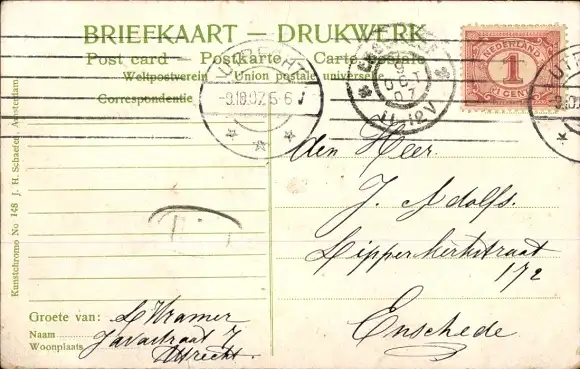 BRIEFKAART — DRUKWERK
Post card — Postkarte — Carte postale
Weltpostverein Union postale universelle
Correspondentie
UTRECHT
9.10.07 5-6 N
ENSCHEDE
OCT
07
11-12V
NEDERLAND
1
CENT
UTR
den Heer
J. Adolfs.
Lipperkerkstraat
172
Enschede
Kunstchromo No 148 J. H. Schaefer, Amsterdam
Groete van: L Kramer
Naam Javastraat 7
Woonplaats Utrecht.